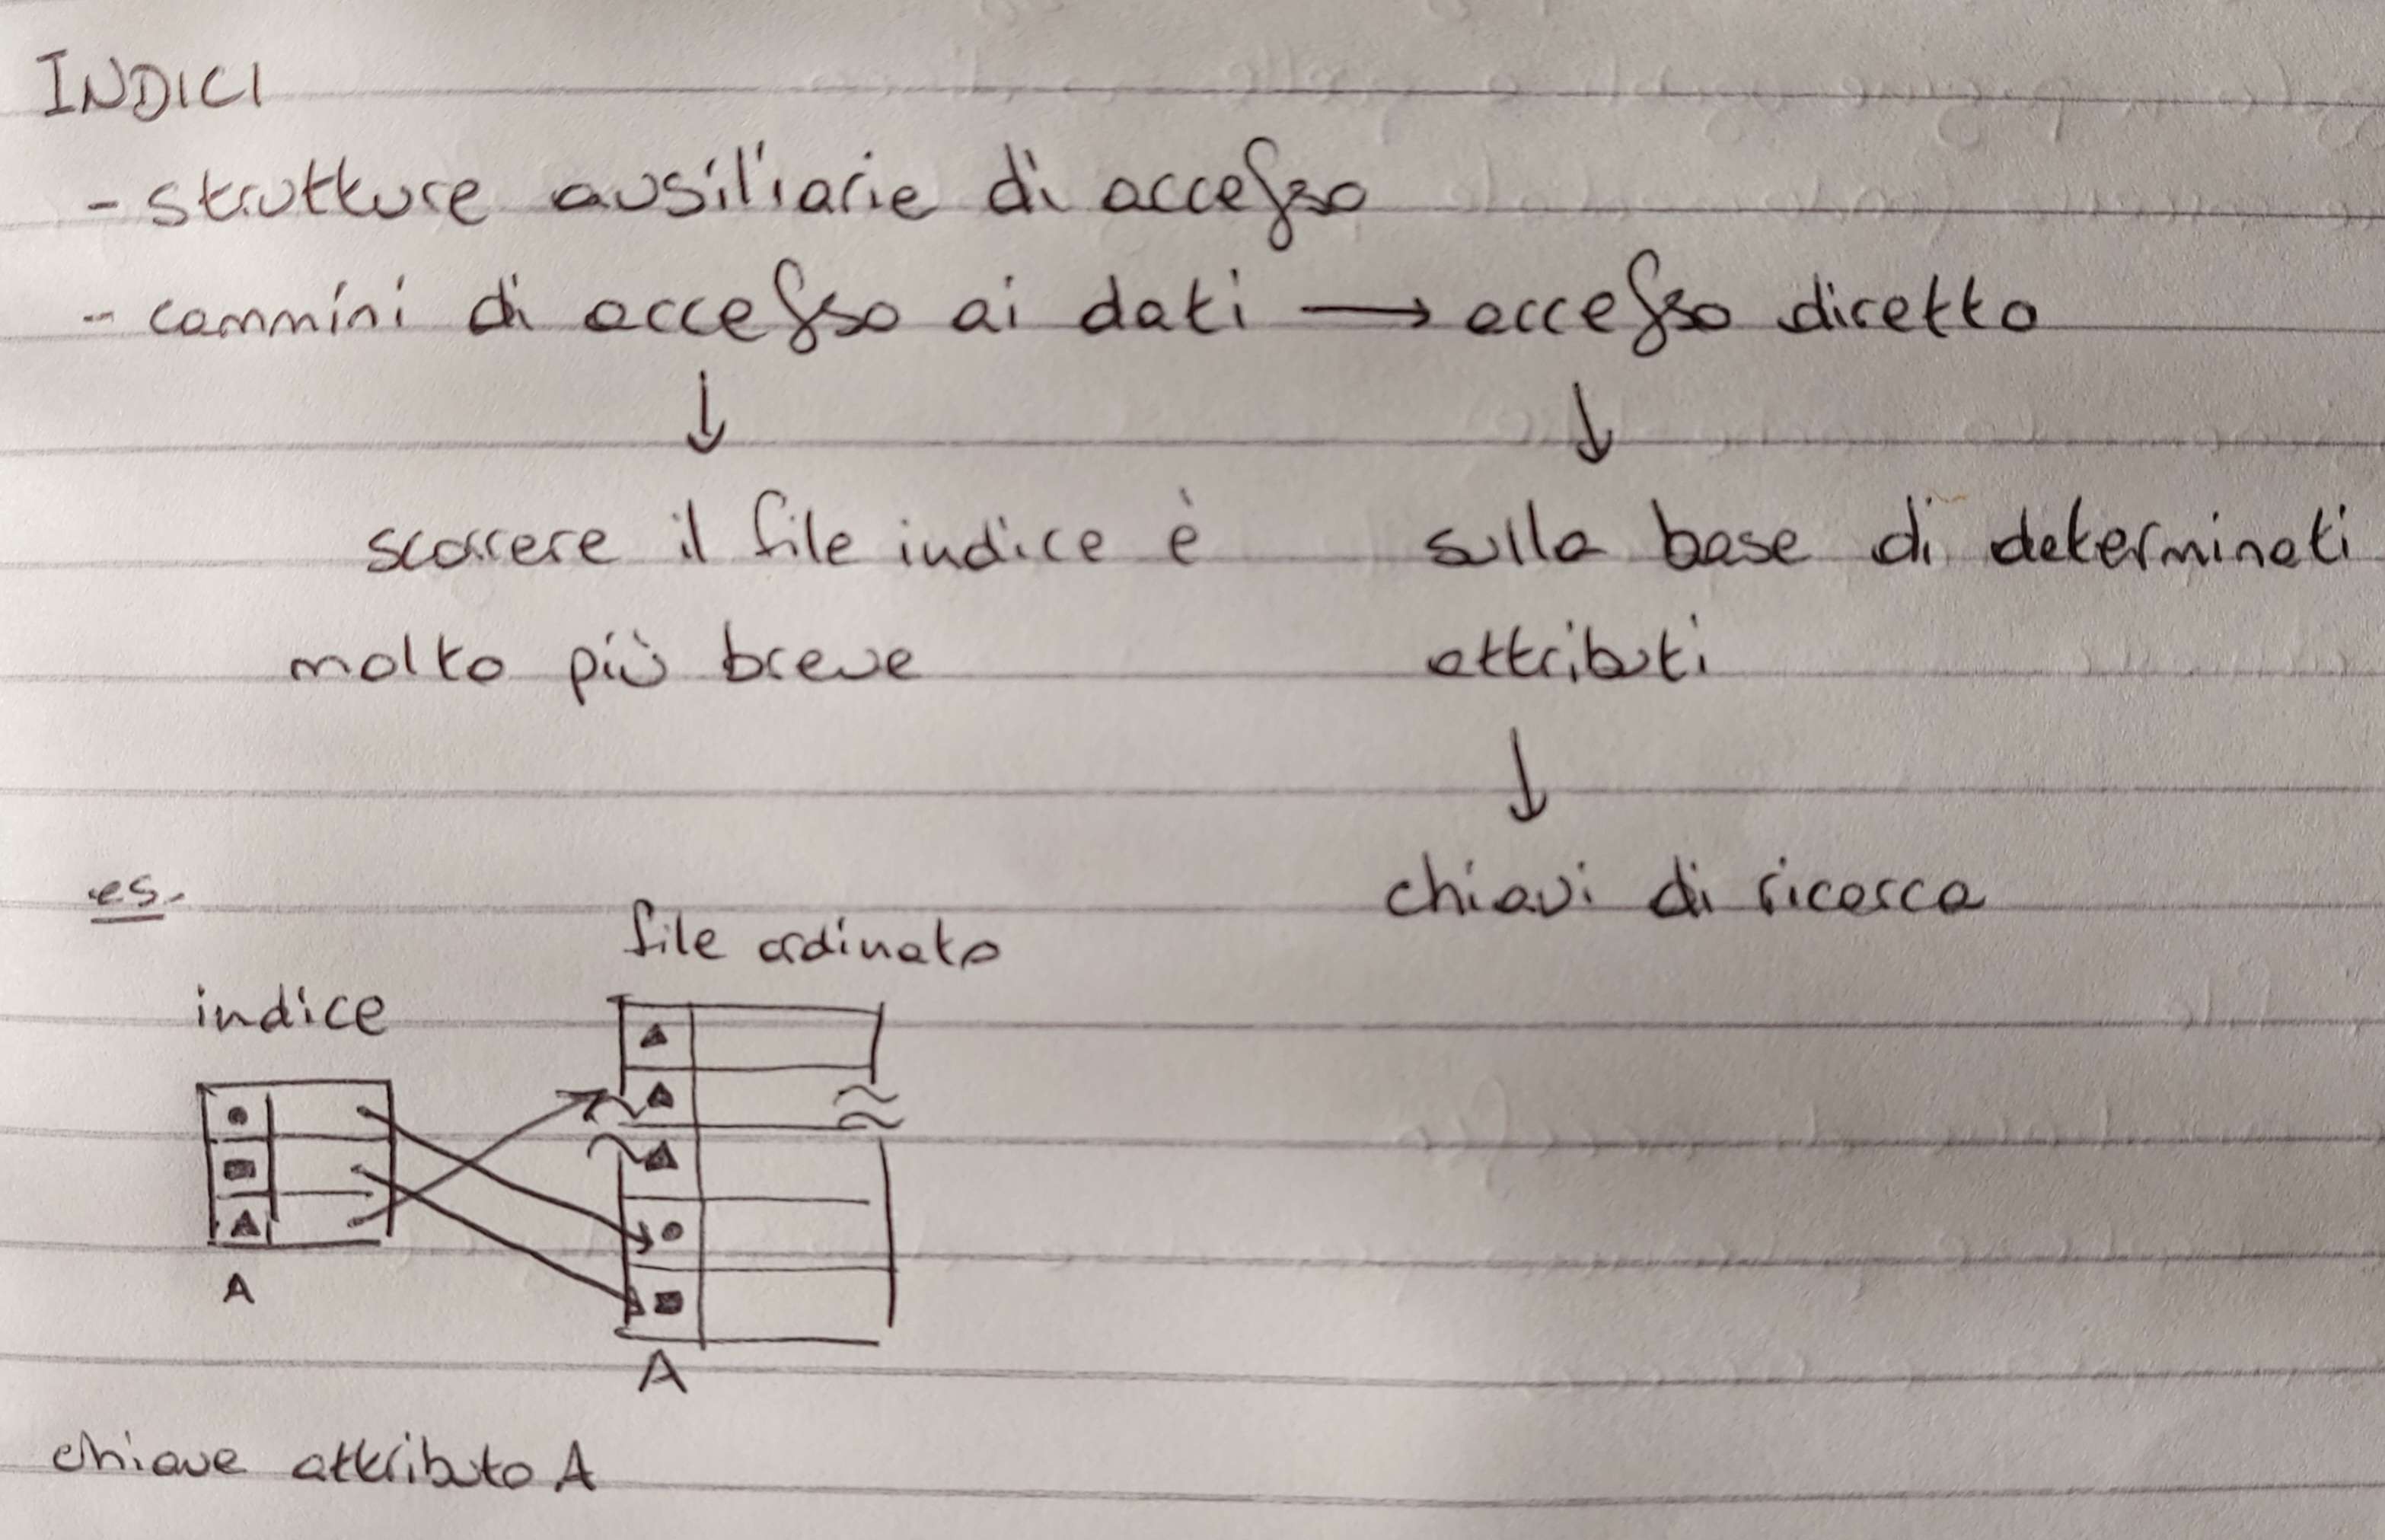 INDICI
- strutture ausiliarie di accesso
- cammini di accesso ai dati → accesso diretto
↓ ↓
scorrere il file indice è
molto più breve
sulla base di determinati
attributi
↓
chiavi di ricerca
es.
file ordinato
indice
A
A
chiave attributo A